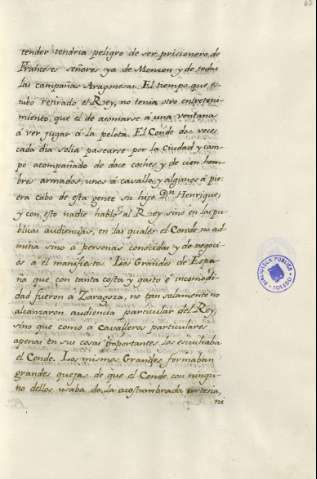 tender tendria peligro de ser prisionero, de
Franceses señores ya de Monzon, y de todas
las campañas Aragonesas. El tiempo que es-
tubo retirado el Rey, no tenia otro entreteni-
miento, que el de acomarse à una ventana
à ver jugar à la pelota. El Conde dos veces
cada dia solia pasearse por la Ciudad y cam-
po acompañado de doce coches, y de cien hom-
bres armados, unos à cavallo, y algunos à pie:
era cabo de esta gente su hijo Dn. Henrique,
y con esto nadie hablò al Rey sino en las pu-
blicas audiencias, en las quales el Conde no ad-
mitia sino à personas conocidas y de negoci-
os à el manifiestos. Los Grandes de Espa-
ña que con tanta costa y gasto è incomodi-
dad fueron à Zaragoza, no tan solamente no
alcanzaron audiencia particular del Rey,
sino que como à Cavalleros particulares
apenas en sus cosas importantes los escuchaba
el Conde. Los mismos Grandes formaban
grandes quejas de que el Conde con ningu-
no dellos usaba de la acostumbrada cortesia,
BIBLIOTECA PUBLICA
TOLEDO